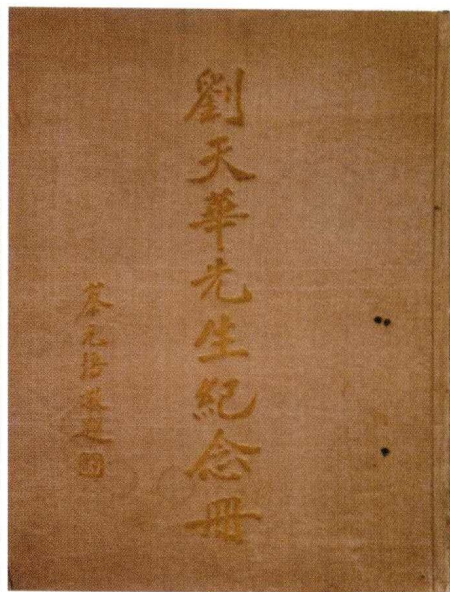 劉天華先生紀念冊
蔡元培敬題